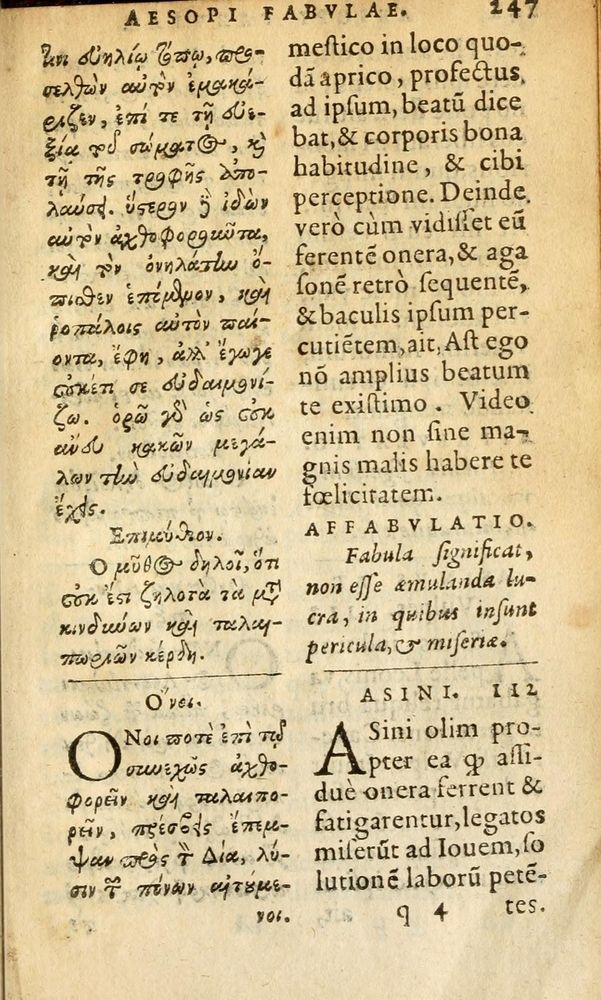 AESOPI FABVLAE. 247
τινι εὐηλίῳ τόπῳ, προσ-
ελθὼν αὐτὸν ἐμακά-
ριζεν, ἐπί τε τῇ εὐε-
ξίᾳ τοῦ σώματος, καὶ
τῇ τῆς τροφῆς ἀπο-
λαύσει. ὕστερον δὲ ἰδὼν
αὐτὸν ἀχθοφοροῦντα,
καὶ τὸν ὀνηλάτην ὄ-
πιθεν ἑπόμενον, καὶ
ῥοπάλοις αὐτὸν παί-
οντα, ἔφη, ἀλλ' ἔγωγε
οὐκέτι σε εὐδαιμονί-
ζω. ὁρῶ γὰρ ὡς οὐκ
ἄνευ κακῶν μεγά-
λων τὴν εὐδαιμονίαν
ἔχεις.
Επιμύθιον.
Ο μῦθος δηλοῖ, ὅτι
οὐκ ἔστι ζηλοτὰ τὰ μετὰ
κινδύνων καὶ ταλαι-
πωριῶν κέρδη.
Ο῎νοι.
ΟΝοι ποτὲ ἐπὶ τῷ
συνεχῶς ἀχθο-
φορεῖν καὶ ταλαιπο-
ρεῖν, πρέσβεις ἔπεμ-
ψαν πρὸς τὸν Δία, λύ-
σιν τῶν πόνων αἰτούμε-
νοι.
mestico in loco quo-
dā aprico, profectus
ad ipsum, beatū dice
bat, & corporis bona
habitudine, & cibi
perceptione. Deinde
verò cùm vidisset eū
ferentē onera, & aga
sonē retrò sequentē,
& baculis ipsum per-
cutiētem, ait, Ast ego
nō amplius beatum
te existimo. Video
enim non sine ma-
gnis malis habere te
fœlicitatem.
AFFABVLATIO.
Fabula significat,
non esse æmulanda lu-
cra, in quibus insunt
pericula, & miseriæ.
ASINI. 112
ASini olim pro-
pter ea ꝙ assi-
duè onera ferrent &
fatigarentur, legatos
miserūt ad Iouem, so
lutionē laborū petē-
q 4 tes.